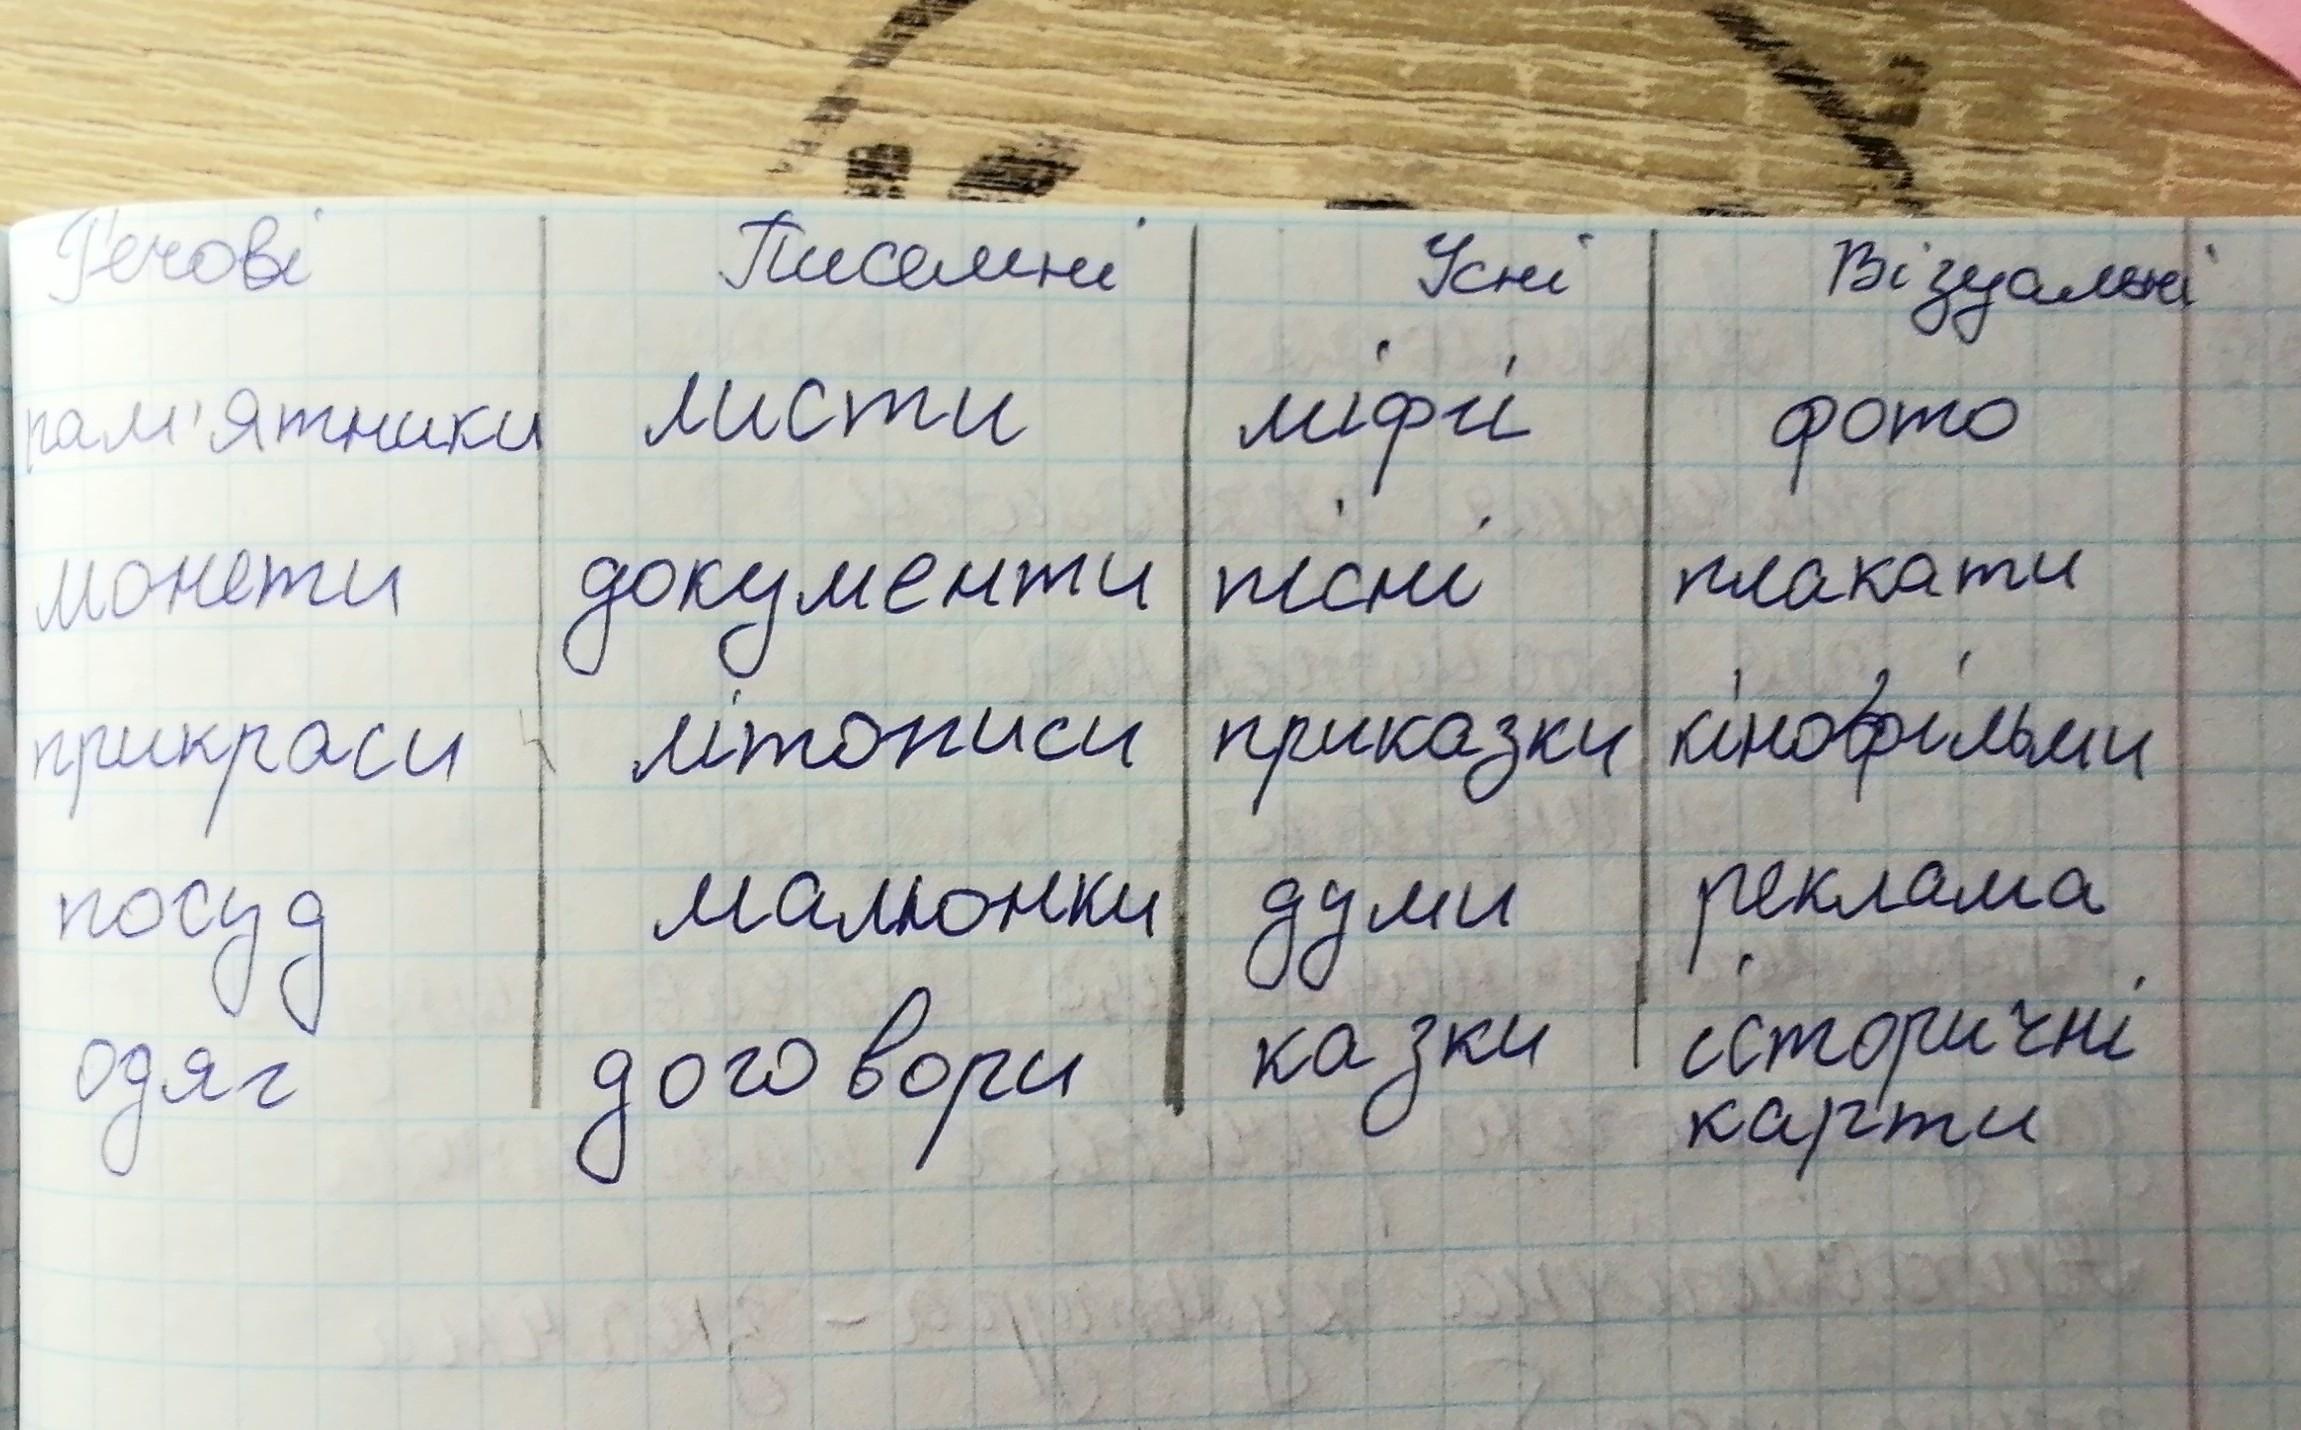 Речові Писемні Усні Візуальні
пам'ятники листи міфи фото
монети документи пісні плакати
прикраси літописи приказки кінофільми
посуд малюнки думи реклама
одяг договори казки історичні
карти